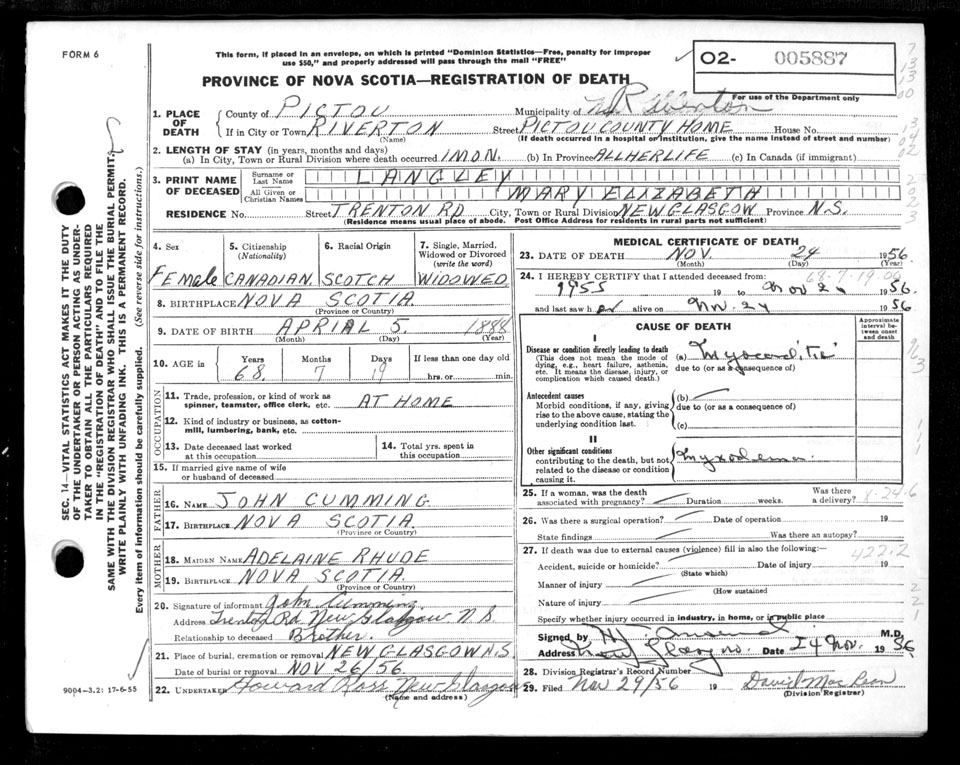 FORM 6
This form, if placed in an envelope, on which is printed "Dominion Statistics—Free, penalty for improper
use $50," and properly addressed will pass through the mail "FREE"
PROVINCE OF NOVA SCOTIA—REGISTRATION OF DEATH
02- 005887
For use of the Department only
1. PLACE OF DEATH
County of PICTOU Municipality of
If in City or Town RIVERTON Street PICTOU COUNTY HOME House No.
(Name) (If death occurred in a hospital or institution, give the name instead of street and number)
2. LENGTH OF STAY (in years, months and days)
(a) In City, Town or Rural Division where death occurred 1 MON. (b) In Province ALL HER LIFE (c) In Canada (if immigrant)
3. PRINT NAME OF DECEASED
Surname or Last Name LANGLEY
All Given or Christian Names MARY ELIZABETH
RESIDENCE No. Street TRENTON RD City, Town or Rural Division NEW GLASGOW Province N.S.
(Residence means usual place of abode. Post Office Address for residents in rural parts not sufficient)
4. Sex FEMALE
5. Citizenship (Nationality) CANADIAN
6. Racial Origin SCOTCH
7. Single, Married, Widowed or Divorced (write the word) WIDOWED
8. BIRTHPLACE NOVA SCOTIA
(Province or Country)
9. DATE OF BIRTH APRIAL 5. 1888
(Month) (Day) (Year)
10. AGE in Years 68 Months 7 Days 19 If less than one day old hrs. or min.
OCCUPATION
11. Trade, profession, or kind of work as
spinner, teamster, office clerk, etc. AT HOME
12. Kind of industry or business, as cotton-
mill, lumbering, bank, etc.
13. Date deceased last worked
at this occupation
14. Total yrs. spent in
this occupation
15. If married give name of wife
or husband of deceased
FATHER
16. NAME JOHN CUMMING
17. BIRTHPLACE NOVA SCOTIA.
(Province or Country)
MOTHER
18. MAIDEN NAME ADELAINE RHUDE
19. BIRTHPLACE NOVA SCOTIA.
(Province or Country)
20. Signature of informant John Cumming.
Address Trenton Rd. New Glasgow N.S
Relationship to deceased Brother.
21. Place of burial, cremation or removal NEW GLASGOW N.S.
Date of burial or removal NOV 26/56
22. UNDERTAKER Howard Ross New Glasgow
(Name and address)
MEDICAL CERTIFICATE OF DEATH
23. DATE OF DEATH NOV. 24 1956
(Month) (Day) (Year)
68-7-19.00
24. I HEREBY CERTIFY that I attended deceased from:
1955 19 to Nov 1956.
and last saw h er alive on Nov. 24 1956
CAUSE OF DEATH
Approximate interval between onset and death
I
Disease or condition directly leading to death
(This does not mean the mode of
dying, e.g., heart failure, asthenia,
etc. It means the disease, injury, or
complication which caused death.)
(a) Myocarditis
due to (or as a consequence of)
Antecedent causes
Morbid conditions, if any, giving
rise to the above cause, stating the
underlying condition last.
(b)
due to (or as a consequence of)
(c)
II
Other significant conditions
contributing to the death, but not
related to the disease or condition
causing it.
Myxodema.
25. If a woman, was the death
associated with pregnancy? Duration weeks. Was there a delivery?
26. Was there a surgical operation? Date of operation 19
State findings Was there an autopsy?
27. If death was due to external causes (violence) fill in also the following:—
422.2
Accident, suicide or homicide? Date of injury 19
(State which)
Manner of injury
(How sustained
Nature of injury
Specify whether injury occurred in industry, in home, or in public place
Signed by M.D.
Address New Glasgow. Date 24 Nov. 1956
28. Division Registrar's Record Number
29. Filed Nov 29/56 19 David MacLean
(Division Registrar)
SEC. 14—VITAL STATISTICS ACT MAKES IT THE DUTY
OF THE UNDERTAKER OR PERSON ACTING AS UNDER-
TAKER TO OBTAIN ALL THE PARTICULARS REQUIRED
IN THE "REGISTRATION OF DEATH" AND TO FILE THE
SAME WITH THE DIVISION REGISTRAR WHO SHALL ISSUE THE BURIAL PERMIT.
WRITE PLAINLY WITH UNFADING INK. THIS IS A PERMANENT RECORD.
Every item of information should be carefully supplied. (See reverse side for instructions.)
9004-3.2: 17-6-55